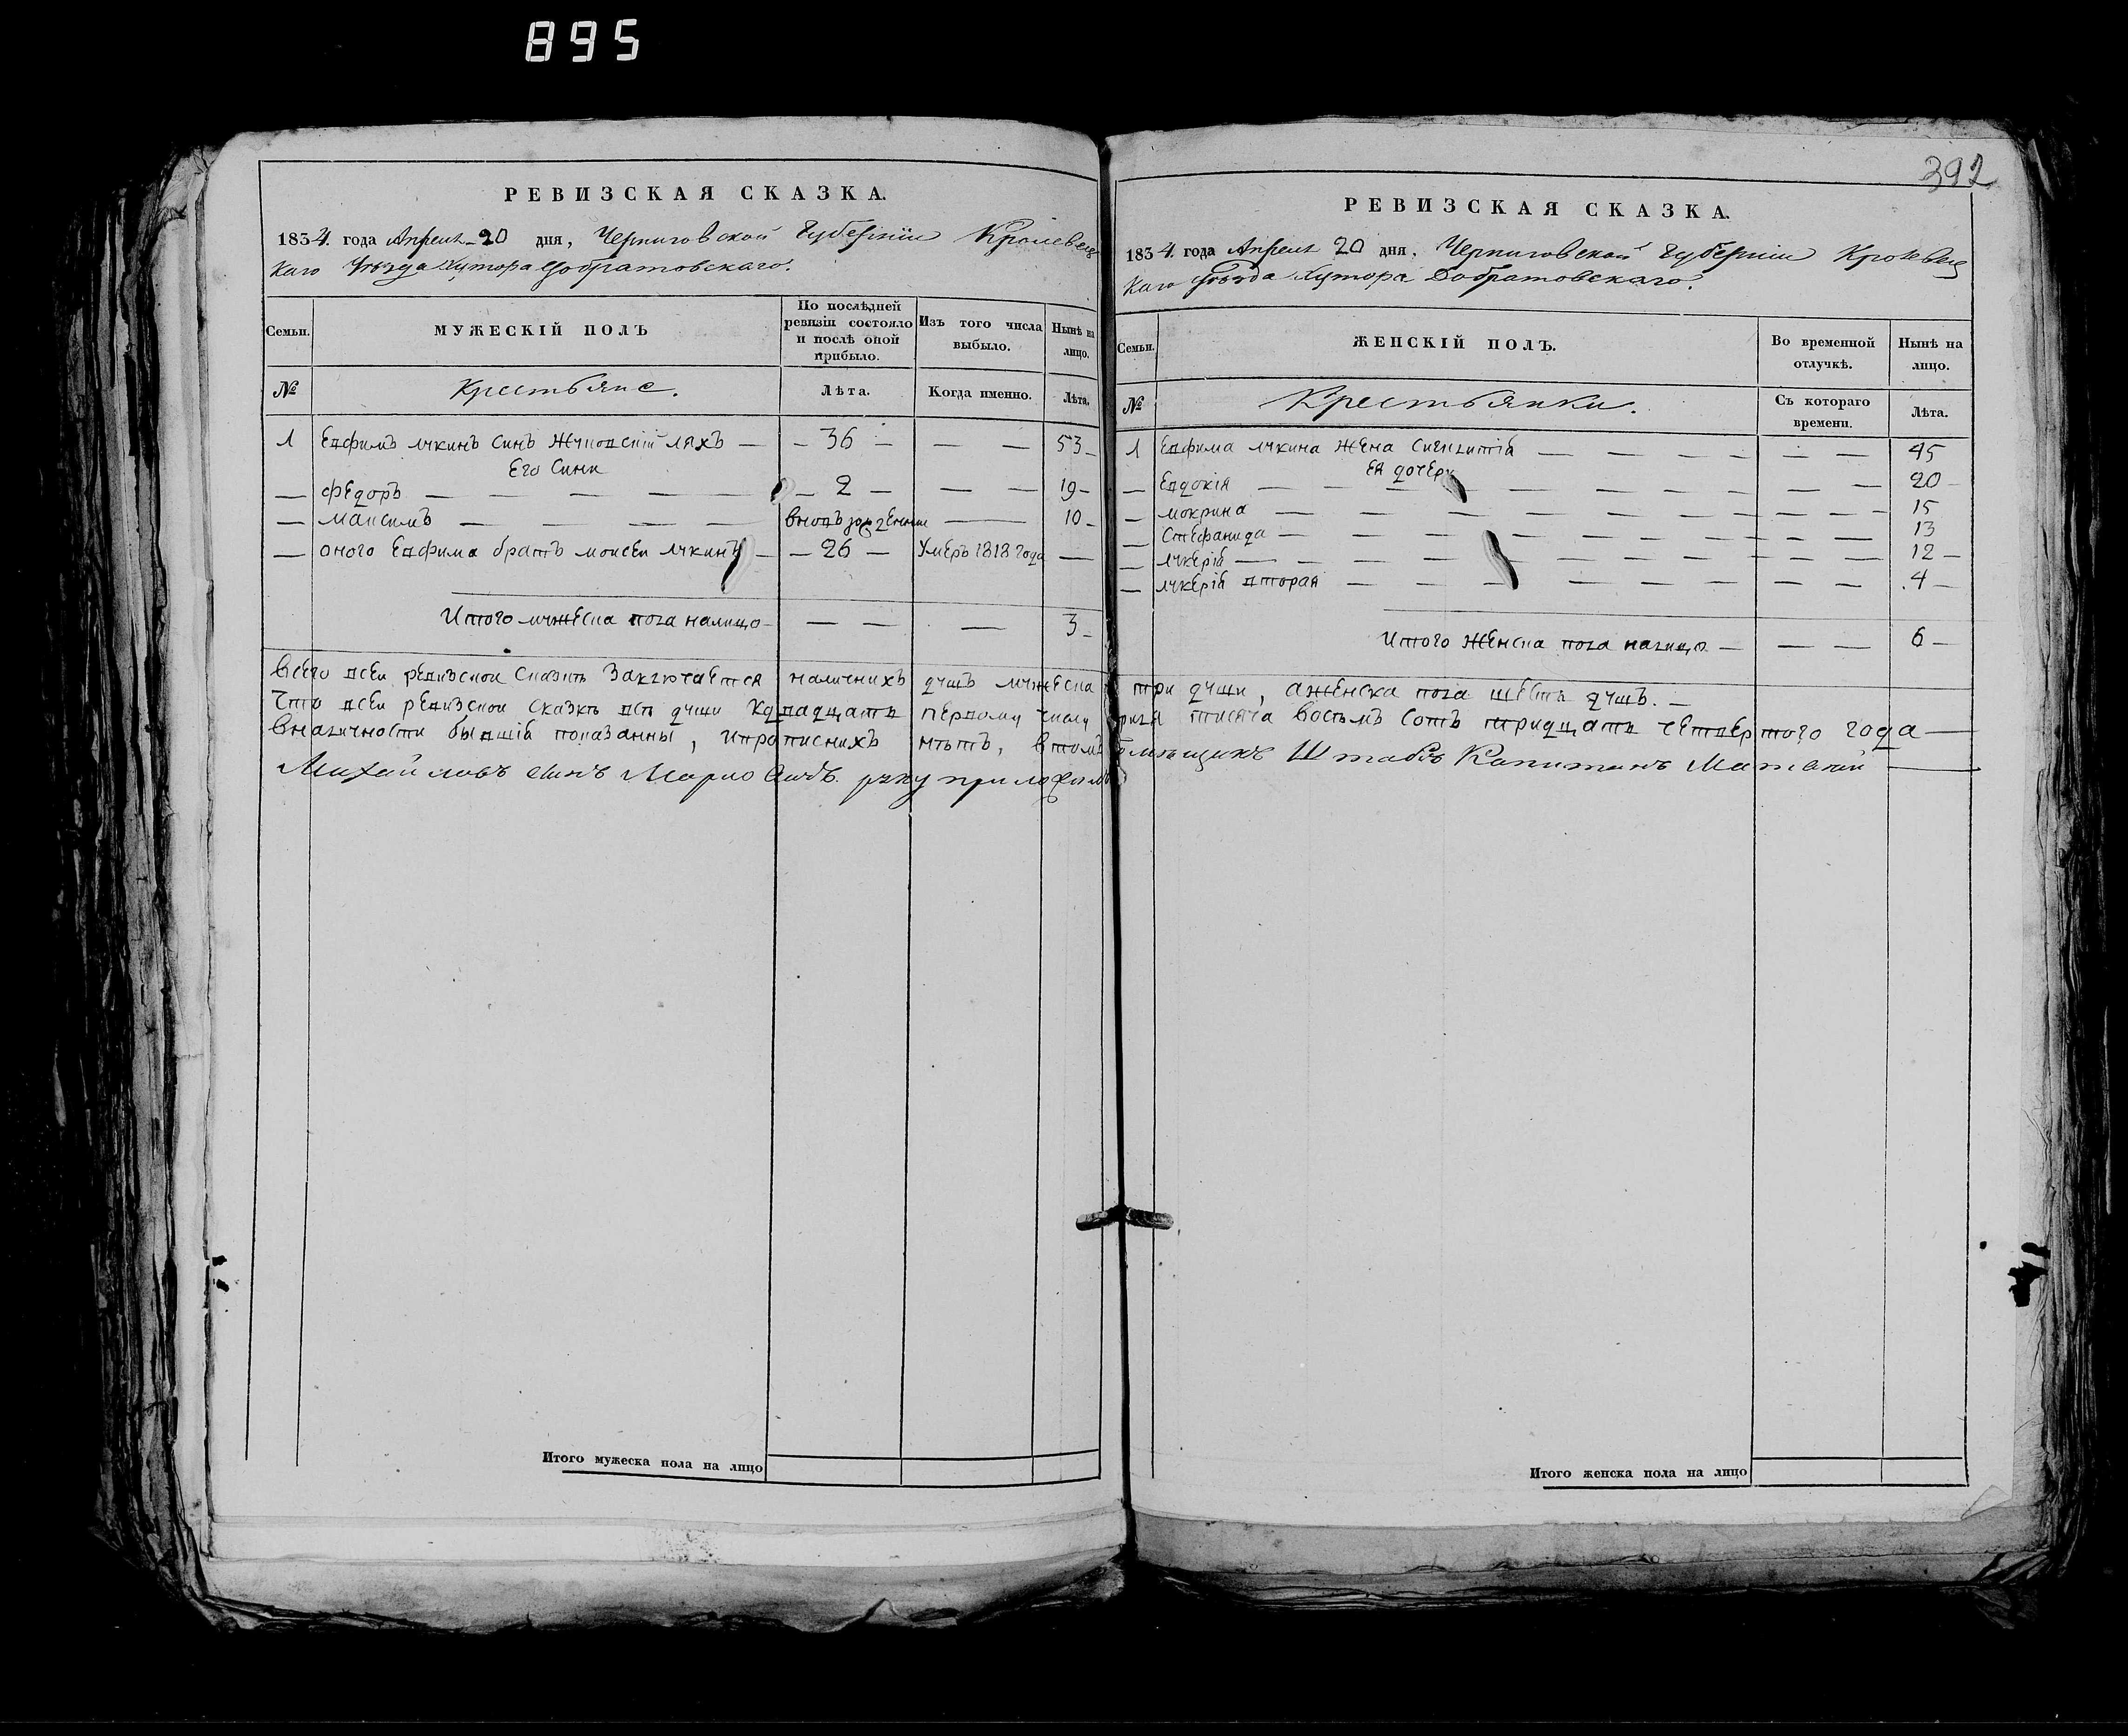 895
392
РЕВИЗСКАЯ СКАЗКА.
1834. года Апреля 20 дня, Черниговской Губернiи Кролевец
каго Уезда Хутора Добратовскаго.
Семьи.
МУЖЕСКІЙ ПОЛЪ
По послѣдней ревизіи состояло и послѣ оной прибыло.
Изъ того числа выбыло.
Нынѣ на лицо.
№
Крестьяне.
Лѣта.
Когда именно.
Лѣта.
1 Евфимъ лукинъ синъ ляхъ — 36 — — — 53
Его сини
— Федоръ — 2 — — — 19
— максимъ — — 10
— оного Евфима братъ моисеи лукинъ — 26 — Умеръ 1818 года —
Итого мужеска пола налицо — — — 3
РЕВИЗСКАЯ СКАЗКА.
1834. года Апреля 20 дня, Черниговской Губернiи Кролевец
каго Уезда Хутора Добратовскаго.
Семьи.
ЖЕНСКІЙ ПОЛЪ.
Во временной отлучкѣ.
Нынѣ на лицо.
№
Крестьянки.
Съ котораго времени.
Лѣта.
1 Евфима лукина жена — — — 45
Ея дочери
— Евдокія — — — 20
— мокрина — — — 15
— Стефанида — — — 13
— лукерія — — — 12
— лукерія вторая — — — 4
Итого женска пола налицо — — — 6
всего всеи ревизскои сказки заключается наличнихъ душъ мужеска три души, аженска пола шесть душъ. —
Что всеи ревизскои сказкѣ всѣ души кдвадцать первому числу тисяча восемъ сотъ тридцать четвертого года —
вналичности бывшія показанны, ипрописнихъ нѣтъ, втомъ Штабсъ Капитанъ Матвѣй
Михайловъ синъ руку приложилъ
Итого мужеска пола на лицо
Итого женска пола на лицо